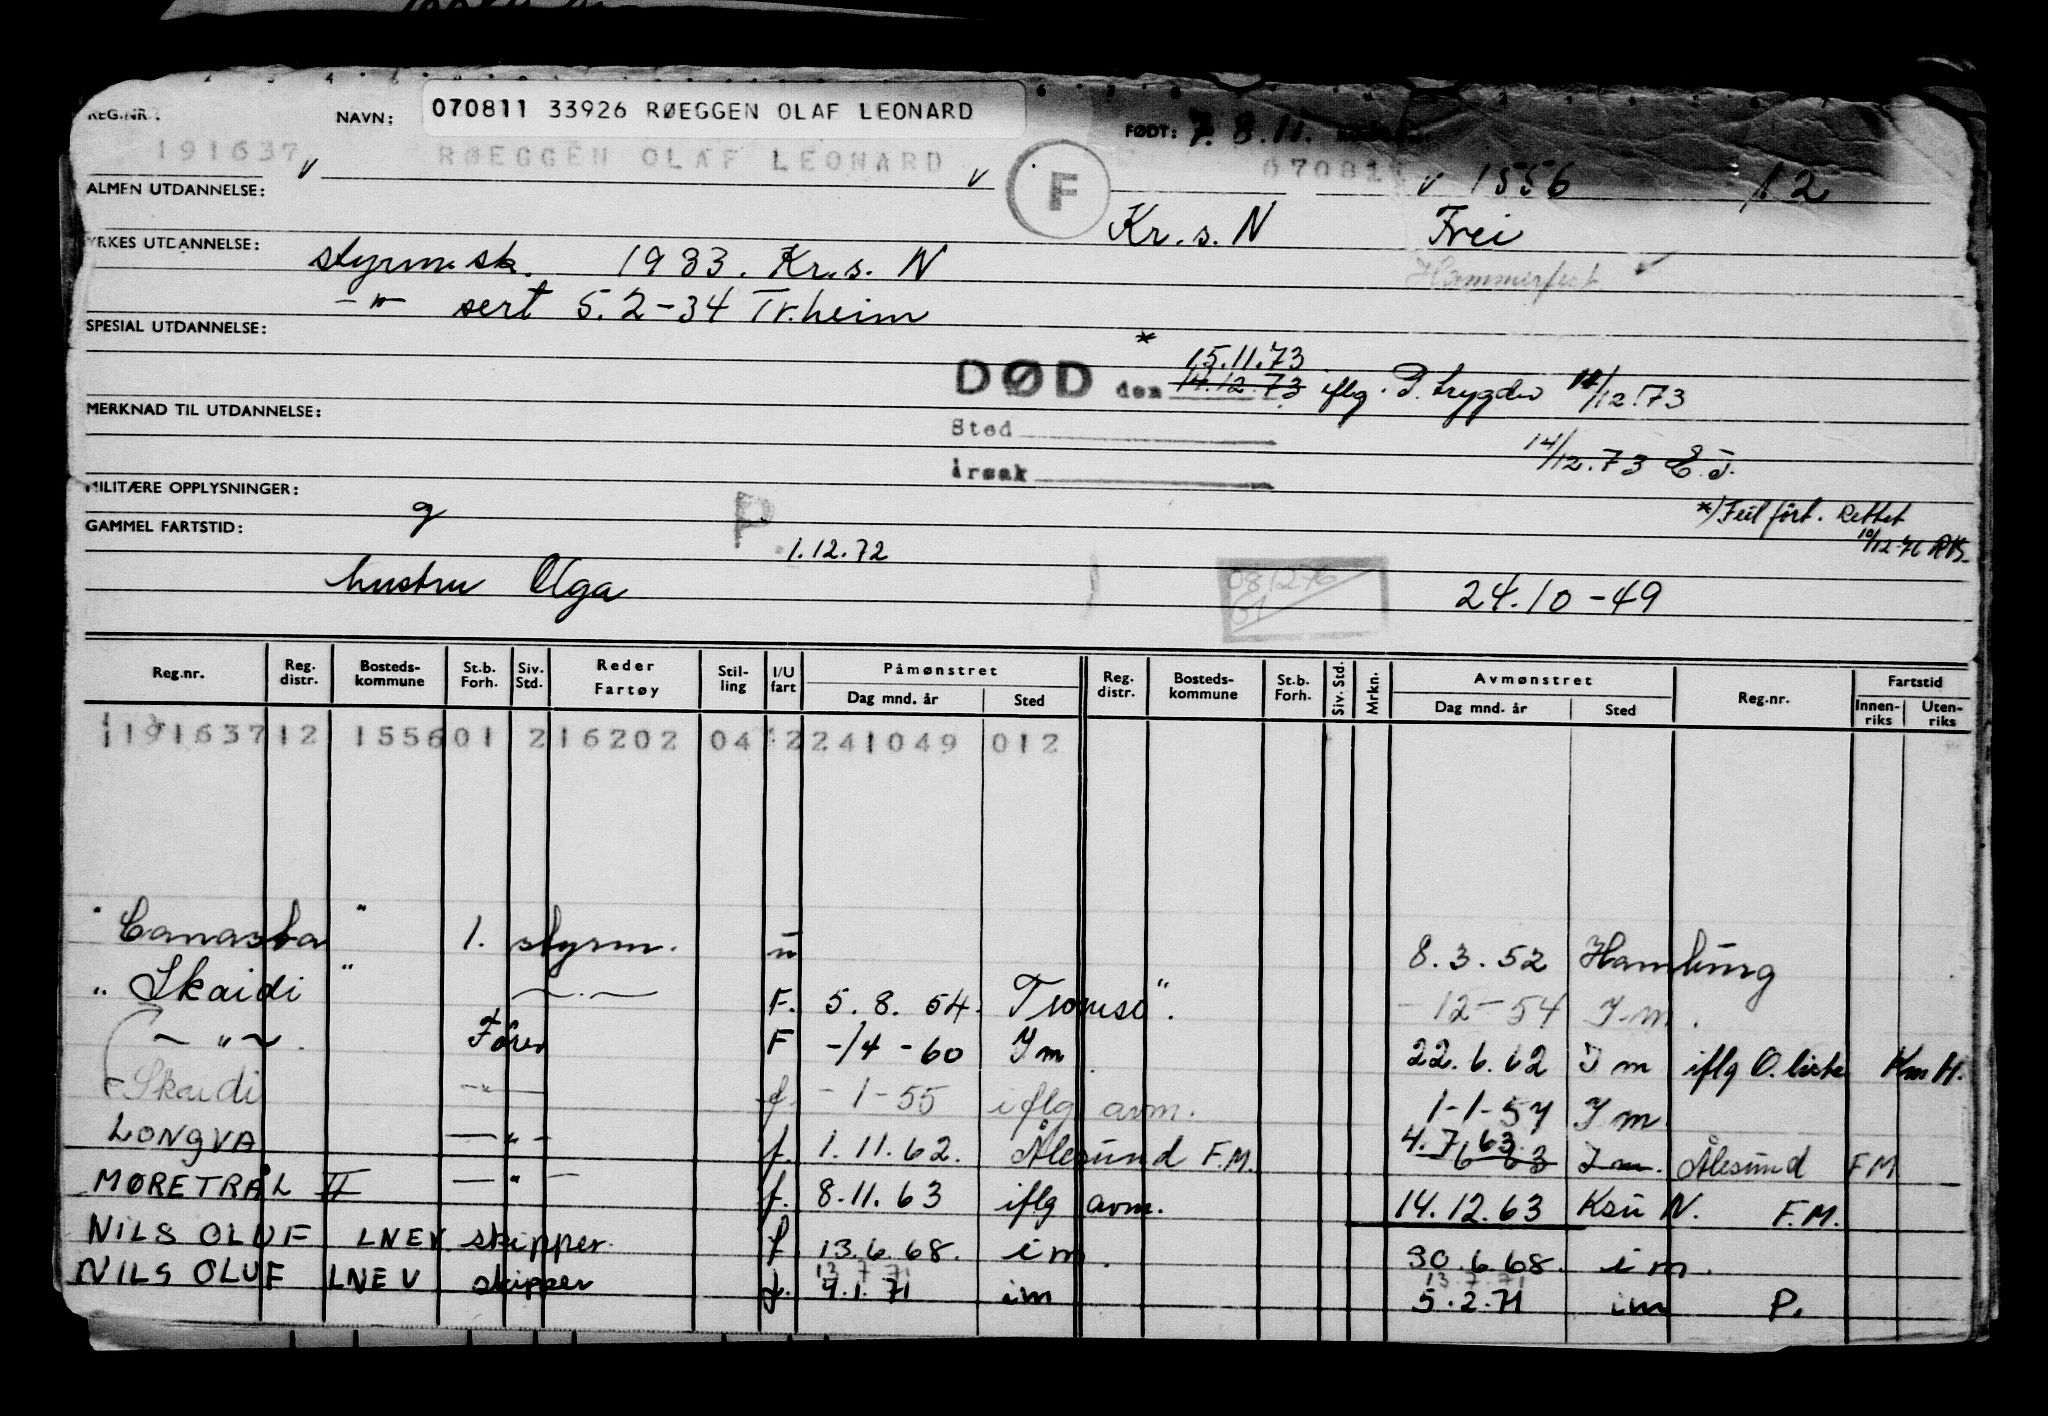 REG.NR.: NAVN: 070811 33926 RØEGGEN OLAF LEONARD FØDT: 7.8.11.
191637 v RØEGGEN OLAF LEONARD v F 070811 v 1556 12
ALMEN UTDANNELSE:
Kr.s.N Frei
YRKES UTDANNELSE: styrm.sk. 1933. Kr.s. N Hammerfest
—"— sert 5.2-34 Tr.heim
SPESIAL UTDANNELSE:
* 15.11.73
DØD den 14.12.73 iflg. P. trygdev 14/12.73
MERKNAD TIL UTDANNELSE:
Sted
14/12.73 E.J.
årsak
MILITÆRE OPPLYSNINGER: g P *) Feilført. Rettet
GAMMEL FARTSTID: 10/12.76 RB.
1.12.72
hustru Olga 081276 01 24.10-49
Reg.nr. Reg. distr. Bosteds- kommune St.b. Forh. Siv. Std. Reder Fartøy Stil- ling I/U fart Påmønstret Dag mnd. år Sted Reg. distr. Bosteds- kommune St.b. Forh. Siv. Std. Mrkn. Avmønstret Dag mnd. år Sted Reg.nr. Fartstid Innen- riks Uten- riks
191637 12 1556 01 2 16202 04 2 241049 012
" Canasta " 1. styrm. u 8.3.52 Hamburg
" Skaidi " —.— F. 5.8.54. Tromsø ". -12-54 I m.
— " — . Fører F -/4-60 I m 22.6.62 I m iflg O.liste Km H.
Skaidi —"— f. -1-55 iflg avm. 1-1-57 I m
LONGVA —"— f. 1.11.62. Ålesund F.M. 4.7.63. 6 63 I m. Ålesund FM
MØRETRÅL II —"— f. 8.11.63 iflg avm. 14.12.63 Ksu N. F.M.
NILS OLUF LNEV skipper. f 13.6.68. i m. 30.6.68. i m.
13 7 71 13.7.71
NILS OLUF LNEV skipper f. 9.1.71 im 5.2.71 im P.